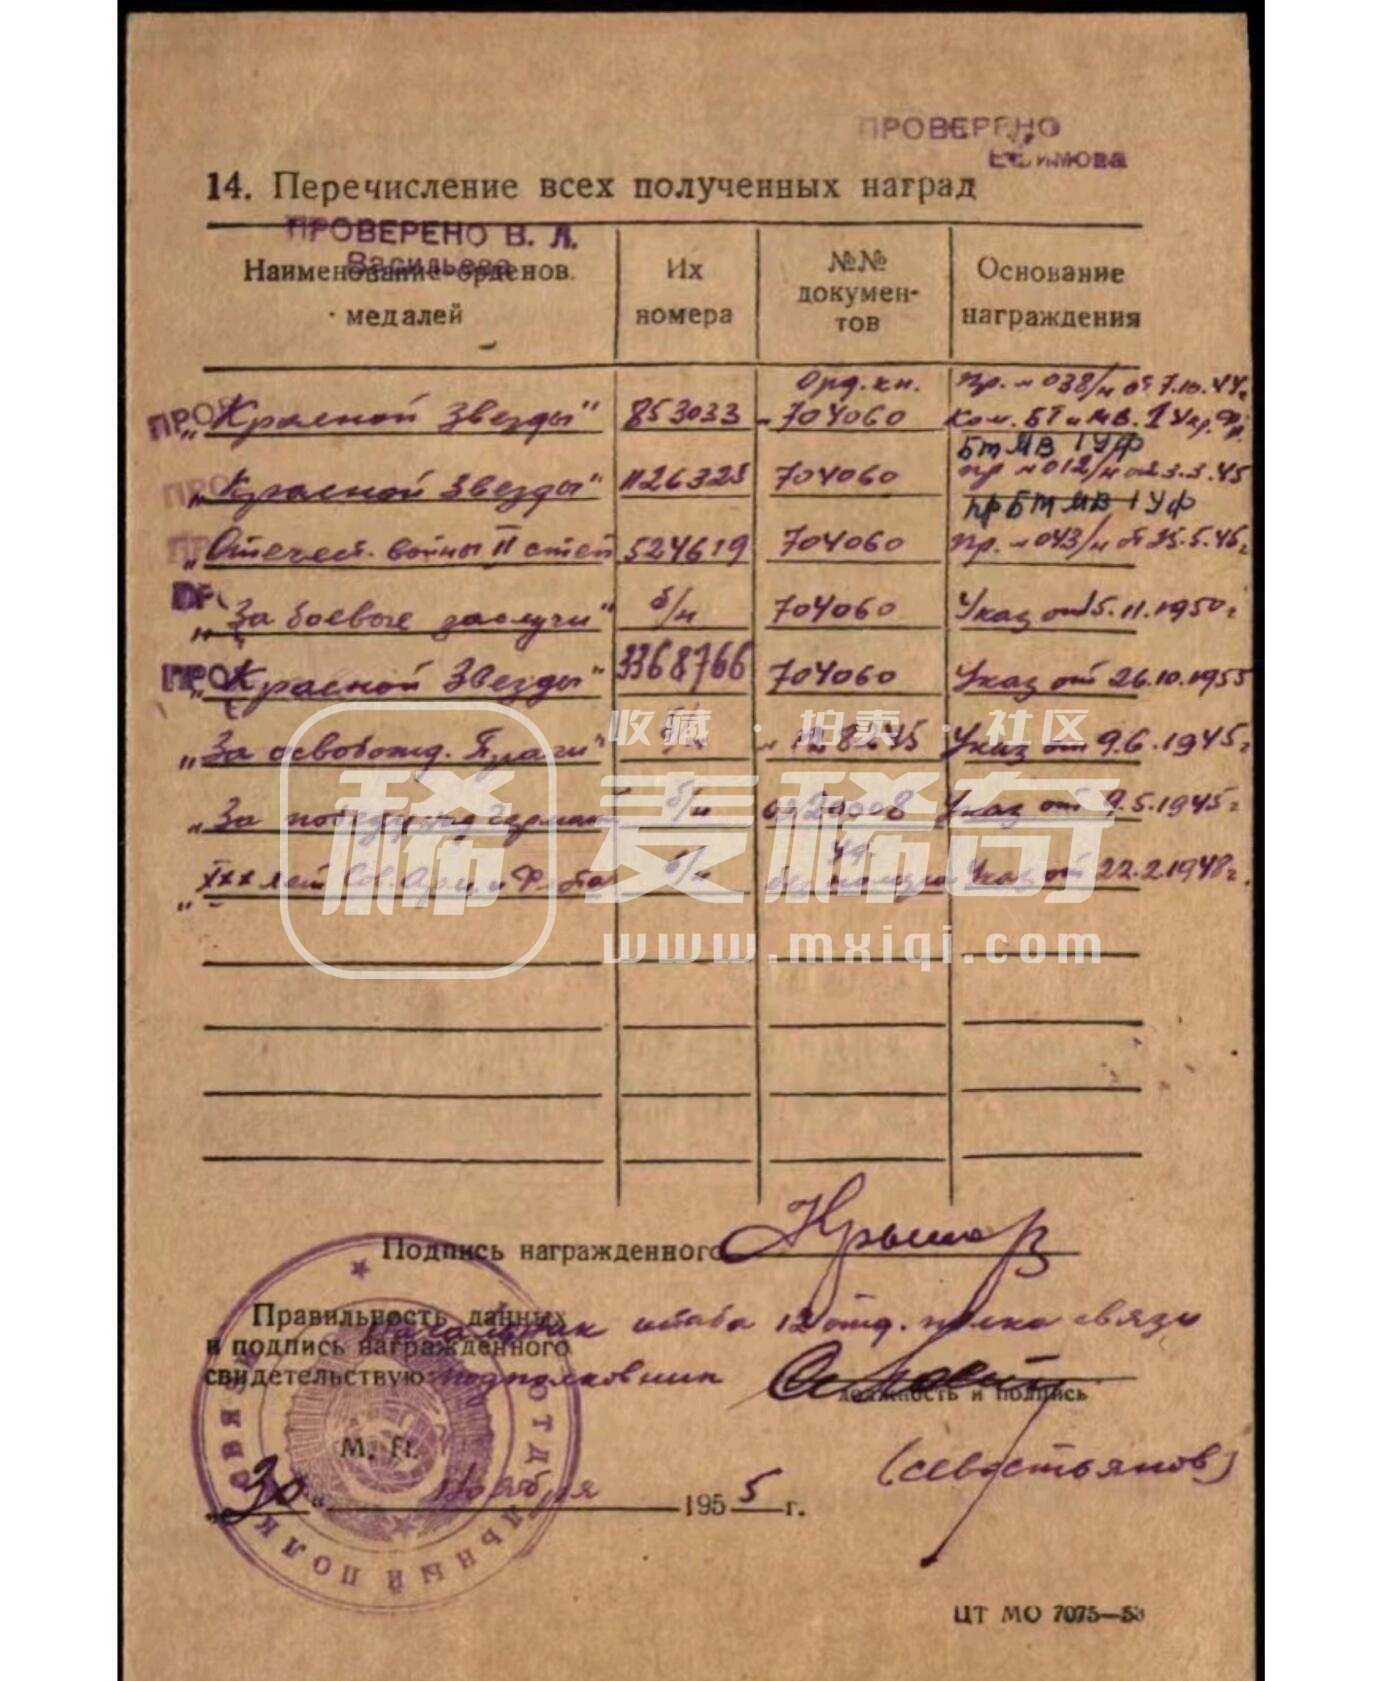 ПРОВЕРЕНО
Ефимова
14. Перечисление всех полученных наград
ПРОВЕРЕНО В. Л.
Васильева
Наименование орденов медалей
Их номера
№№ докумен-
тов
Основание награждения
Орд. кн. Пр. № 038/н от 7.10.44г.
ПРОВ „Красной Звезды" 853033 № 704060 Ком. БТ и МВ. 1 Укр. Фр.
БТ МВ 1 УФ
ПРО „Красной Звезды" 1126325 704060 пр № 012/н от 3.3.45
пр БТ МВ 1 УФ
ПР „Отечест. войны II степ 524619 704060 Пр. № 043/н от 25.5.45г
ПРО „За боевые заслуги" б/н 704060 Указ от 15.11.1950г
ПРО „Красной Звезды" 3368766 704060 Указ от 26.10.1955
„За освобожд. Праги" б/н Указ от 9.6.1945г
„За победу над Герман б/н Указ от 9.5.1945г
„XXX лет Сов. Арм. и Флота б/н Уд. без номера Указ от 22.2.1948г.
收藏·拍卖·社区
稀 麦稀奇
www.mxiqi.com
Подпись награжденного
Правильность данных начальник штаба 12 отд. полка связи
и подпись награжденного
свидетельствую: подполковник
должность и подпись
М. П.
(Севостьянов)
„30" ноября 1955 г.
ОТДЕЛЬНЫЙ ПОЛК СВЯЗИ
ЦТ МО 7075—53